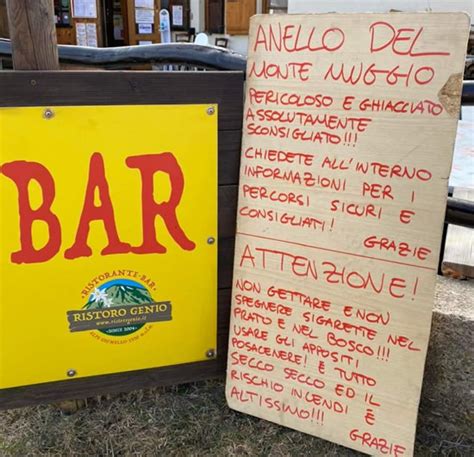 BAR
RISTORANTE-BAR
RISTORO GENIO
www.ristorogenio.it
SINCE 2004
ANELLO DEL
MONTE MUGGIO
PERICOLOSO E GHIACCIATO
ASSOLUTAMENTE
SCONSIGLIATO!!!
CHIEDETE ALL'INTERNO
INFORMAZIONI PER I
PERCORSI SICURI E
CONSIGLIATI!
GRAZIE
ATTENZIONE!
NON GETTARE E NON
SPEGNERE SIGARETTE NEL
PRATO E NEL BOSCO!!!
USARE GLI APPOSITI
POSACENERE! È TUTTO
SECCO SECCO ED IL
RISCHIO INCENDI È
ALTISSIMO!!!
GRAZIE